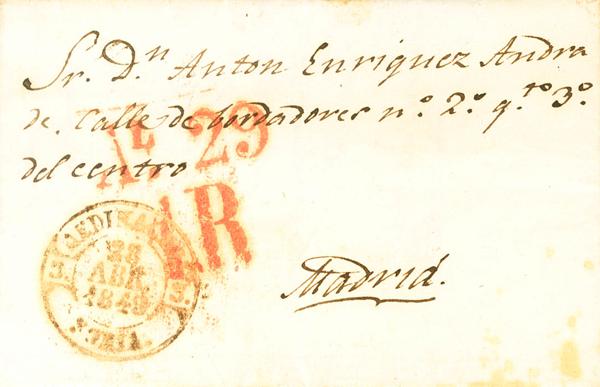 Sr. Dn. Anton Enriquez Andra
de. Calle de bordadores nº. 2º. qto. 3º.
del centro
AL 29
AR
28
ABR
1849
Madrid.